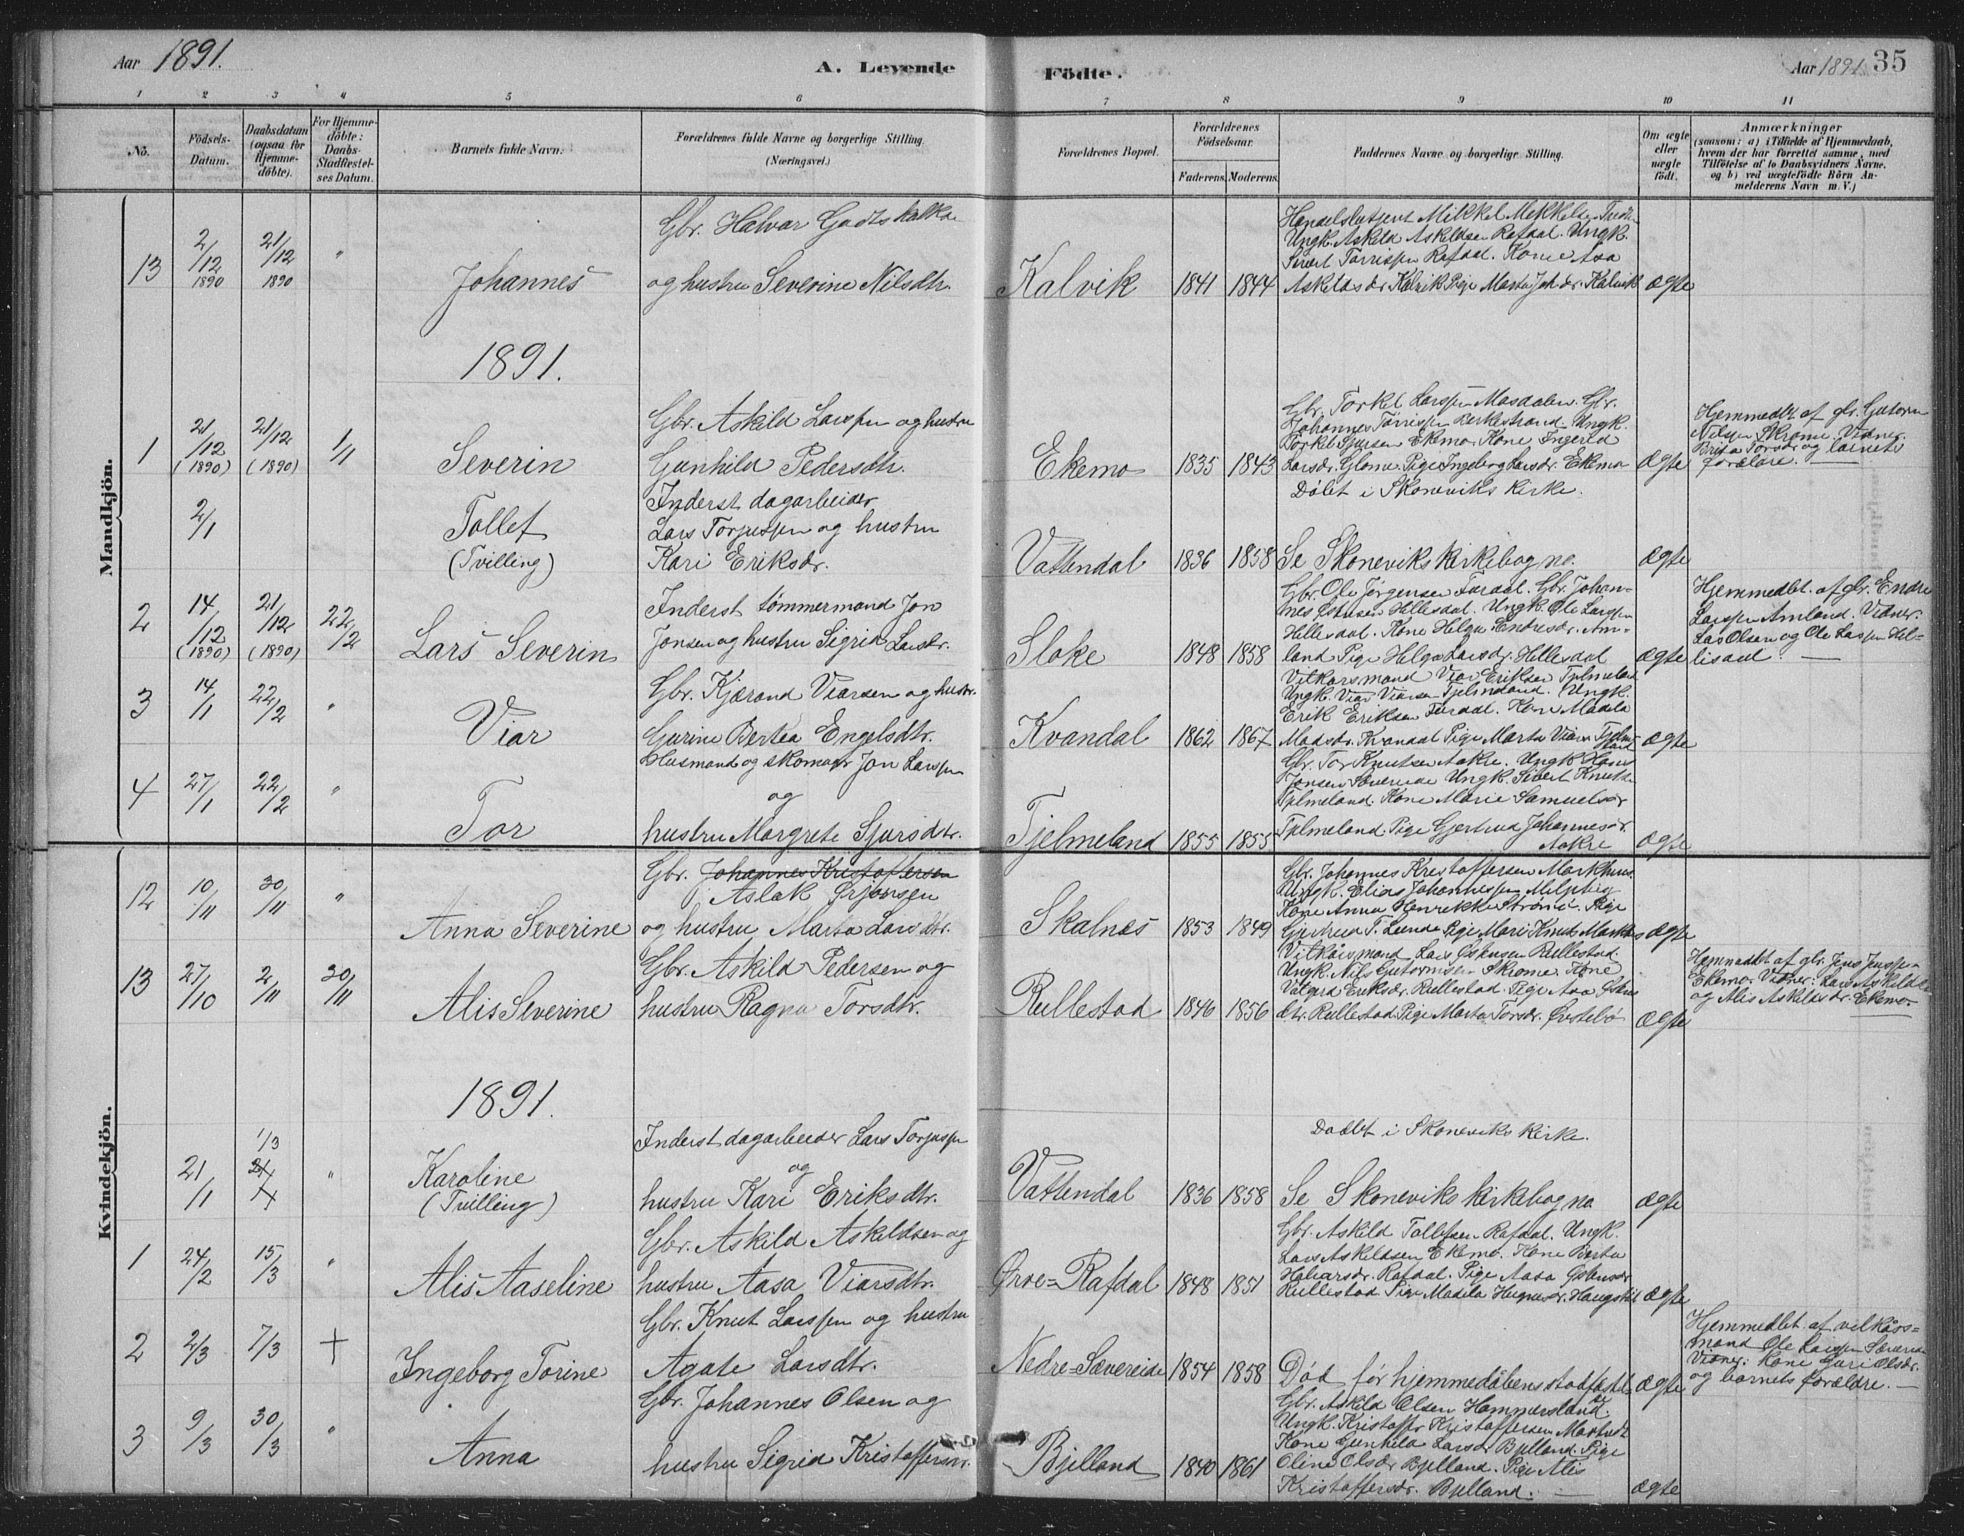 Aar 1891.
A. Levende Fødte.
Aar 1891 35
1 2 3 4 5 6 7 8 9 10 11
No.
Fødsels-Datum.
Daabsdatum (ogsaa for Hjemmedöbte).
For Hjemmedöbte: Daabs-Stadfæstelses Datum.
Barnets fulde Navn.
Forældrenes fulde Navne og borgerlige Stilling (Næringsvei.)
Forældrenes Bopæl.
Forældrenes Fødselsaar.
Faderens. Moderens.
Faddernes Navne og borgerlige Stilling.
Om ægte eller uægte født.
Anmærkninger
(saasom: a) i Tilfælde af Hjemmedaab, hvem der har forrettet samme, med Tilföielse af to Daabsvidners Navne, og b) ved uægtefödte Börn Anmelderens Navn m. V.)
Mandkjön.
13 2/12 1890 21/12 1890 " Johannes
Gbr. Halvar Godtskalkss
og hustru Severine Nilsdtr.
Kalvik 1841 1844
Ungk. Askild Askildsen Rafdal. Ungk.
Askildsdr. Kalvik Pige Marta Joh.dr. Kalvik
ægte
1891.
1 21/12 (1890) 21/12 (1890) 1/1 Severin
Gbr. Askild Larssen og hustru
Gunhild Pedersdtr.
Ekemo 1835 1843
Gbr. Torkel Larssen Mosdalen. Gbr.
Johannes Ungk.
Ekemo. Kone Ingerid
Larsdr. Pige Ingeborg Larsdr. Ekemo
ægte
Hjemmedbt. af gbr. Gutorm
Nilsen Skromme. Vidner:
Brita Torsdr. og barnets
forældre.
2/1 Tollef
(Tvilling)
Inderst dagarbeider
Lars Torjussen og hustru
Kari Eriksdr.
Vattendal 1836 1858
Døbt i Skoneviks kirke.
Se Skoneviks kirkebog no.
ægte
2 14/12 (1890) 21/12 (1890) 22/2 Lars Severin
Inderst tømmermand Jon
Jonsen og hustru Sigrid Larsdtr.
Sloke 1848 1858
Gbr. Ole Jørgensen Gbr. Johan-
nes Østensen Hillesdal. Ungk. Ole Larssen
Hillesdal. Kone Helga Endresdr. Am-
land Pige Helga Larsdr. Hillesdal
ægte
Hjemmedbt. af gbr. Endre
Larssen Amland. Vidner:
Lars Olsen og Ole Larssen Hil-
lisdal.
3 14/1 22/2 " Viar
Gbr. Kjærand Viarsen og hustr.
Gurine Bertea Engelsdtr.
Kvandal 1862 1867
Vilkårsmand Viar Eriksen Tjelmeland
Ungk. Viar Viarsen Tjelmeland. Ungk.
Erik Eriksen Kone Madela
Madsdr. Kvandal Pige Marta Viarsdr.
ægte
4 27/1 22/2 " Tor
Husmand og skomager Jon Larssen
og
hustru Margrete Sjursdtr.
Tjelmeland 1855 1855
Gbr. Tor Knutsen Aakre. Ungk. Hans
Jonsen Sævereide Ungk. Sivert Knuts.
Tjelmeland. Kone Marie Samuelsdr
Tjelmeland. Pige Gjertrud Johannesdr.
Aakre
ægte
Kvindekjön.
12 10/11 30/11 " Anna Severine
Gbr. Johannes Kristoffersen
Aslak Ørjansen
og hustru Marta Larsdtr.
Skalnes 1853 1849
Gbr. Johannes Kristoffersen Markhus.
Ungk. Elias Johannessen
Kone Anna Henrikke Strømø. Pige
ægte
13 27/10 2/11 30/11 Alis Severine
Gbr. Askild Pedersen og
hustru Ragna Torsdtr.
Rullestad 1846 1856
Vilkårsmand Lars Østensen Rullestad
Ungk. Nils Gutormsen Skromme. Kone
Valgerd Eriksdr. Rullestad. Pige Aasa Østens
dtr. Rullestad. Pige Marta Torsdr. Øvrebø
ægte
Hjemmedbt. af gbr. Jens Jenssen
Ekemo. Vidner: Lars Askildsen
og Alis Askildsdr. Ekemo.
1891.
21/1 1/3 " Karoline
(Tvilling)
Inderst dagarbeider Lars Torjussen
og
hustru Kari Eriksdtr.
Vattendal 1836 1858
Døbt i Skoneviks kirke.
Se Skoneviks kirkebog no.
ægte
1 24/2 15/3 " Alis Aaseline
Gbr. Askild Askildsen og
hustru Aasa Viarsdtr.
Øvre=Rafdal 1848 1851
Gbr. Askild Tollefsen Rafdal. Ungk.
Lars Askildsen Ekemo. Kone Berta
Halvarsdr. Rafdal. Pige Aasa Østensdr
Rullestad Pige Madela
ægte
2 2/3 7/3 + Ingeborg Torine
Gbr. Knut Larssen og hustru
Agate Larsdtr.
Nedre=Sævereide 1854 1858
Død før hjemmedåbens stadfæstelse
ægte
Hjemmedbt. af vilkårs=
mand Ole Larssen Sævereide
Vidner: Kone Guri Olsdr.
og barnets forældre.
3 9/3 30/3 " Anna
Gbr. Johannes Olsen og
hustru Sigrid Kristoffersdr.
Bjelland 1840 1861
Gbr. Askild Olsen Hammersland
Ungk. Kristoffer Kristoffersen
Kone Gunhild Larsdr Bjelland. Pige
Oline Olsdr Bjelland. Pige Alis
Kristoffersdr. Bjelland.
ægte